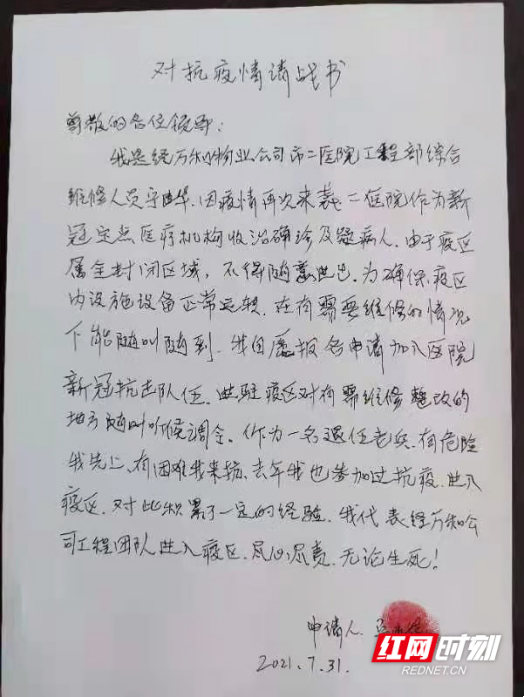 对抗疫情请战书
尊敬的各位领导：
我是经万和物业公司市二医院工程部综合
维修人员，因疫情再次来袭，二医院作为新
冠定点医疗机构收治确诊及疑病人，由于疫区
属全封闭区域，不得随意进出，为确保疫区
内设施设备正常运转，在有需要维修的情况
下能随叫随到，我自愿报名申请加入医院
新冠抗击队伍，进驻疫区对有需维修整改的
地方随时听候调令。作为一名退伍老兵，有危险
我先上，有困难我来抗，去年我也参加过抗疫，进入
疫区，对此积累了一定的经验，我代表经万和公
司工程团队进入疫区，尽心尽责，无论生死！
申请人
2021.7.31.
红网时刻
REDNET.CN